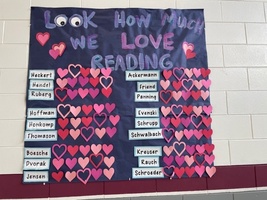 LOOK HOW MUCH
WE LOVE
READING
Heckerl
Hendel
Ruberg
Hoffman
Honkomp
Thomason
Boesche
Dvorak
Jensen
Ackermann
Friend
Penning
Evenski
Schrupp
Schwalbach
Kreuser
Rauch
Schroeder